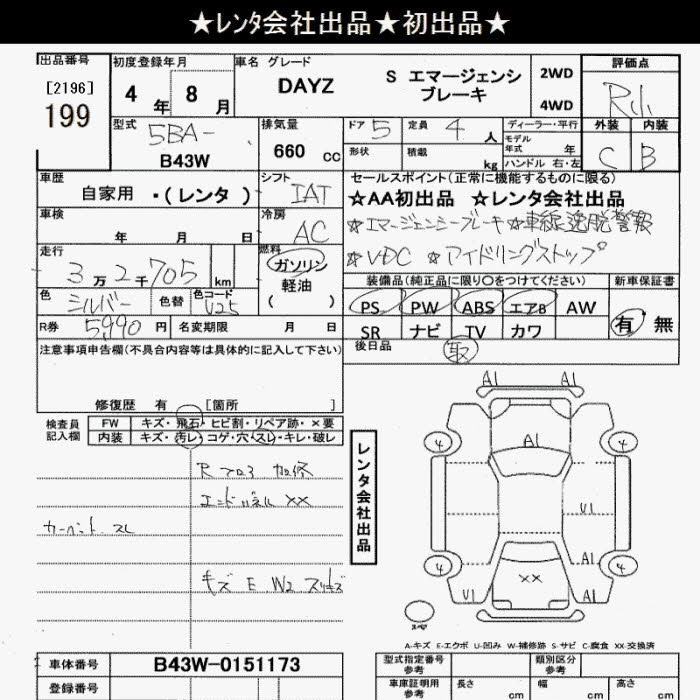 ★レンタ会社出品★初出品★
出品番号
[2196]
199
初度登録年月
4年 8月
車名 グレード
DAYZ
S エマージェンシ
ブレーキ
2WD
4WD
評価点
外装 内装
C B
型式
5BA-
B43W
排気量
660 cc
ドア 5
定員 4人
形状
積載 kg
ディーラー・平行
モデル
年式 年
ハンドル 右・左
車歴
自家用 ・(レンタ)
シフト
IAT
セールスポイント(正常に機能するものに限る)
☆AA初出品 ☆レンタ会社出品
☆エマージェンシーブレーキ ☆車線逸脱警報
☆VDC ☆アイドリングストップ
車検
年 月 日
冷房
AC
走行
3万2千705 km
燃料
ガソリン
軽油
( )
装備品(純正品に限り○をつけてください)
新車保証書
PS PW ABS エアB AW
SR ナビ TV カワ
有 無
色
シルバー
色替
色コード
R券
5990円
名変期限 月 日
後日品
取
注意事項申告欄(不具合内容等は具体的に記入して下さい)
修復歴 有 [箇所 ]
検査員
記入欄
FW キズ・飛石・ヒビ割・リペア跡・×要
内装 キズ・汚レ・コゲ・穴・スレ・キレ・破レ
エンドパネル ××
カーペット スレ
キズ E W2 スリキズ
レンタ会社出品
A1 A1
4 4
A1
U1
A1
4 4
××
U1 A1
スペア
A-キズ E-エクボ U-凹み W-補修跡 S-サビ C-腐食 XX-交換済
車体番号
B43W-0151173
登録番号
型式指定番号
参考
類別区分
参考
車庫証明用
参考
長さ cm
幅 cm
高さ cm